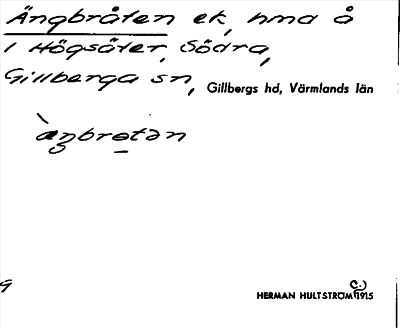 Ängbråten ek, hma å
i Högsäter, Södra,
Gillberga sn, Gillbergs hd, Värmlands län
æŋbrotən
9
HERMAN HULTSTRÖM (c.) 1915